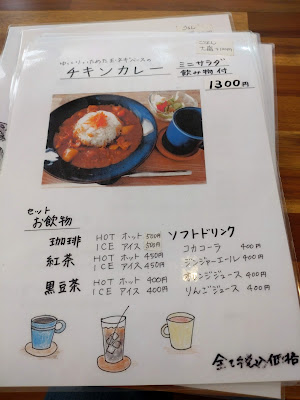 チキンカレー
ミニサラダ
飲み物付
1300円
セット
お飲物
珈琲 HOT ホット 500円
ICE アイス 500円
紅茶 HOT ホット 450円
ICE アイス 450円
黒豆茶 HOT ホット 400円
ICE アイス 400円
ソフトドリンク
コカコーラ 400円
ジンジャーエール 400円
オレンジジュース 400円
りんごジュース 400円
全て税込価格